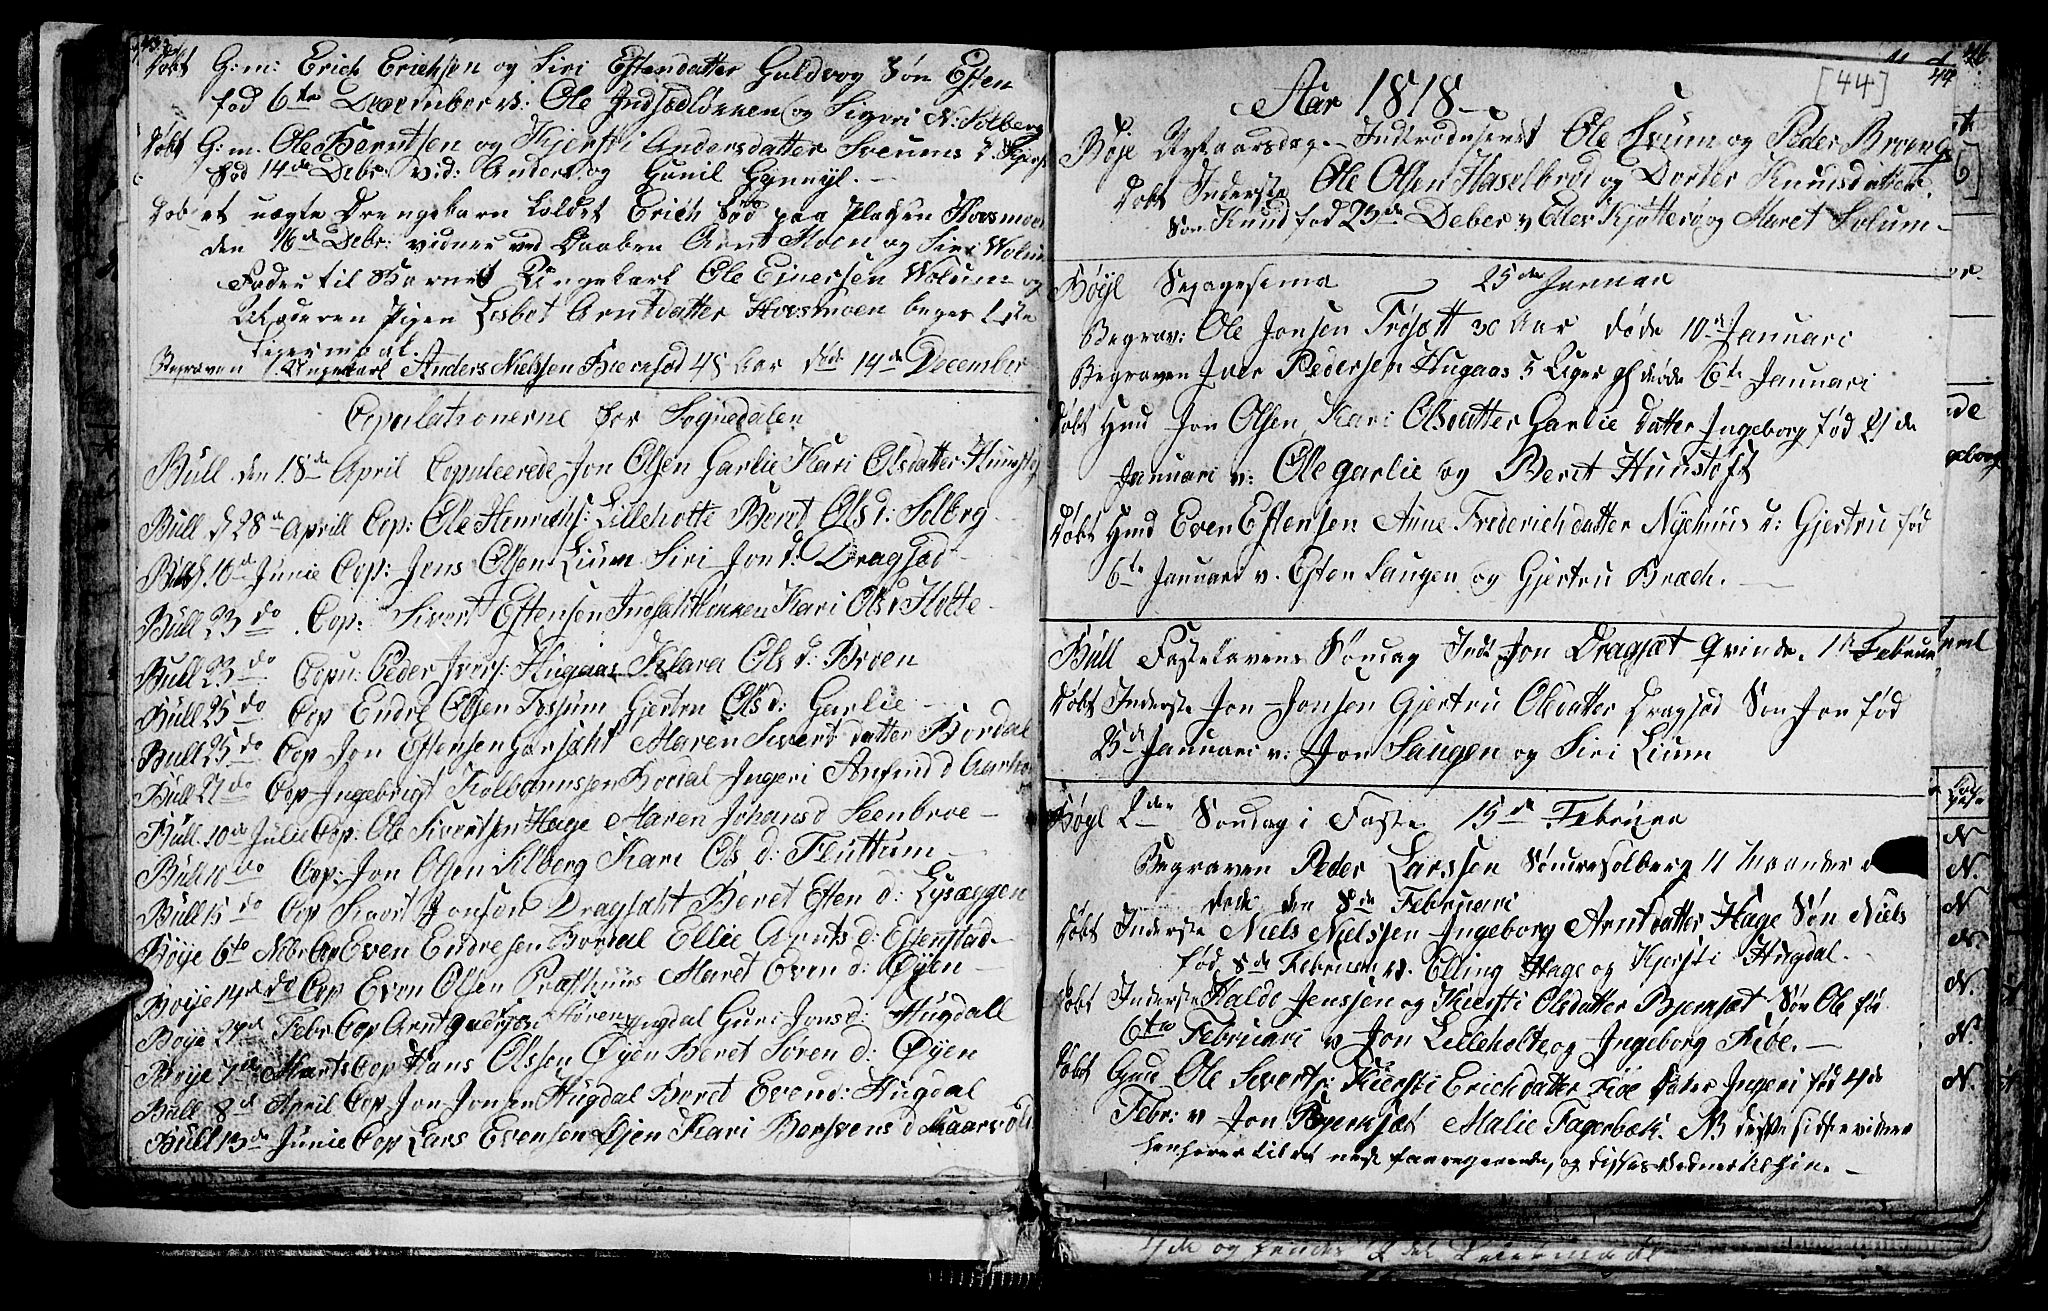 43
Døbt G: m: Erich Erichsen og Siri Estensdatter Guldvog Søn Esten
fød 6te December v: Ole Indsetløkken og Sigori N: Solberg
Døbt G: m. Ole Berntsen og Kjersti Andersdatter Sveums
fød 14de Debr: vid: Anders og Gunil
Døb et uægte Drengebarn kaldet Erich fød paa Pladsen Hovsmoen
den 16de Debr: vidner ved Daaben Arnt Moen og Siri Wolum
Fader til Barnet Ungekarl Ole Einersen Wolum og
Moderen Pigen Lisbet Arntdatter Hovsmoen begges 1ste
Leiermaal.
Begraven Ungekarl Anders Nielssen Bierksød 45 Aar døde 14de December
Copulationerne for Soknedalen
Bull den 18de April Copuleerede Jon Olsen Garlie Kari Olsdatter
Bull d 28de Aprill Cop: Ole Henrichs: Lilleholte Beret Ols d: Solberg
Bull 10de Junie Cop: Jens Olsen Lium Siri Jon d: Dragsød
Bull 23 do Cop: Sivert Estensen Indsætløkken Kari Ols d Holte
Bull 23 do Copu: Peder Ivers: Hugaas Klara Ols d: Broen
Bull 25 do Cop Endre Olsen Fossum Gjertru Ols d: Garlie
Bull 25 do Cop Jon Estensen Garsæht Maren Sivert datter Bordal
Bull 27 do Cop Ingebrigt Kolbannssen Bordal Ingeri Anfind d
Bull. 10de Julie Cop: Ole Sivertsen Hage Maren Johans d Steenbroe
Bull 10 do Cop: Jon Olsen Solberg Kari Ols d: Fluttum
Bull 15 do Cop Sivert Jonsen Dragsæht Beret Esten d: Lysæggen
Bøye 6te Cop Even Endresen Bordal Ellie Arnts d: Estenstad
Bøye 14de do Cop Even Olsen Præsthuus Maret Even d: Øyen
Bøye 27de Febr Cop Arnt Hugdal Guri Jons d: Hugdall
Bøye 7de Marts Cop Hans Olssen Øyen Beret Søren d: Øyen
Bull 8de April Cop Jon Jonsen Hugdal Beret Even d: Hugdal
Bull 13de Junie Cop Lars Evensen Øjen Kari Bersvens d Kaarsvold
44
[44]
Aar 1818
Bøje Nytaarsdag Introduseret Ole Lium og Peder Broen
Døbt Inderste Ole Olsen Haselbrød og Dorter Knudsdatter
Søn Knud fød 23de Deber v Eller Kjøtterø og Maret Solum
Bøyl Sepagesima 25de Januar
Begrav: Ole Jonsen Frøsætt 30 Aar døde 10de Januari
Begraven Iver Pedersen Hugaas 5 Uger gl døde 6te Januari
Døbt Hmd Jon Olsen, Kari Olsdatter Garlie datter Ingeborg fød 21de
Januari v: Ole Garlie og Berit Hunstoft
Døbt Hmd Even Estensen Anne Frederichdatter Nyehuus d: Gjertru fød
6te Januari v. Esten Langen og Gjertru Bræch.
Bull Fastelavens Søndag Intr Jon Dragsæt Qvinde. 1te Februar
Døbt Inderste Jon Jonsen Gjertru Olsdatter Dragsød Søn Jon fød
25de Januari v: Jon Langen og Siri Lium
Bøyl 2den Søndag i Faste 15de Februar
Begraven Peder Larssen Søndre Solberg 11 Maaneder
døde den 8de Februari
Døbt Inderste Niels Nielssen Ingeborg Arntdatter Hage Søn Niels
fød 8de Februari v. Elling Hage og Kjersti Hugdal.
Døbt Inderste Haldo Jenssen og Kiersti Olsdatter Bjerksæt Søn Ole fød
6te Februari v Jon Lilleholte og Ingeborg Fiøe.
Døbt Gmd Ole Siverts: Kiersti Erichdatter Fiøe Datter Ingeri fød 4de
Febr: v Jon Bjerksæt Malie Fagerbæk. NB disse sidste vidner
henhører til det næst foregaaende, og disses vidner til hin.
N
N.
N
N.
N.
N.
N.